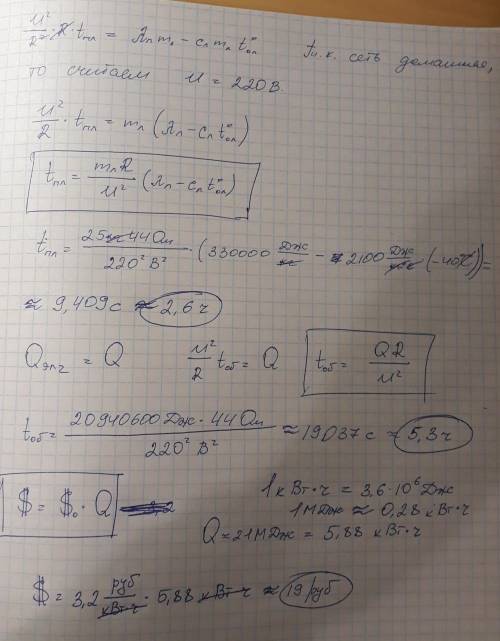 u²/R² · R · tпл = λл mл − cл mл t°ол т.к. сеть домашняя,
то считаем u = 220 В.
u²/R · tпл = mл (λл − cл t°ол)
tпл = mлR/u² (λл − cл t°ол)
tпл = 25 кг · 44 Ом / 220² В² · (330000 Дж/кг − 2100 Дж/кг°C (−40°C)) =
≈ 9,409 с ≈ 2,6 ч
Qэпг = Q u²/R tоб = Q tоб = QR/u²
tоб = 20940600 Дж · 44 Ом / 220² В² ≈ 19037 с ≈ 5,3 ч
$ = $₀ · Q 1 кВт·ч = 3,6·10⁶ Дж
1 МДж ≈ 0,28 кВт·ч
Q ≈ 21 МДж = 5,88 кВт·ч
$ = 3,2 руб/кВт·ч · 5,88 кВт·ч ≈ 19 руб